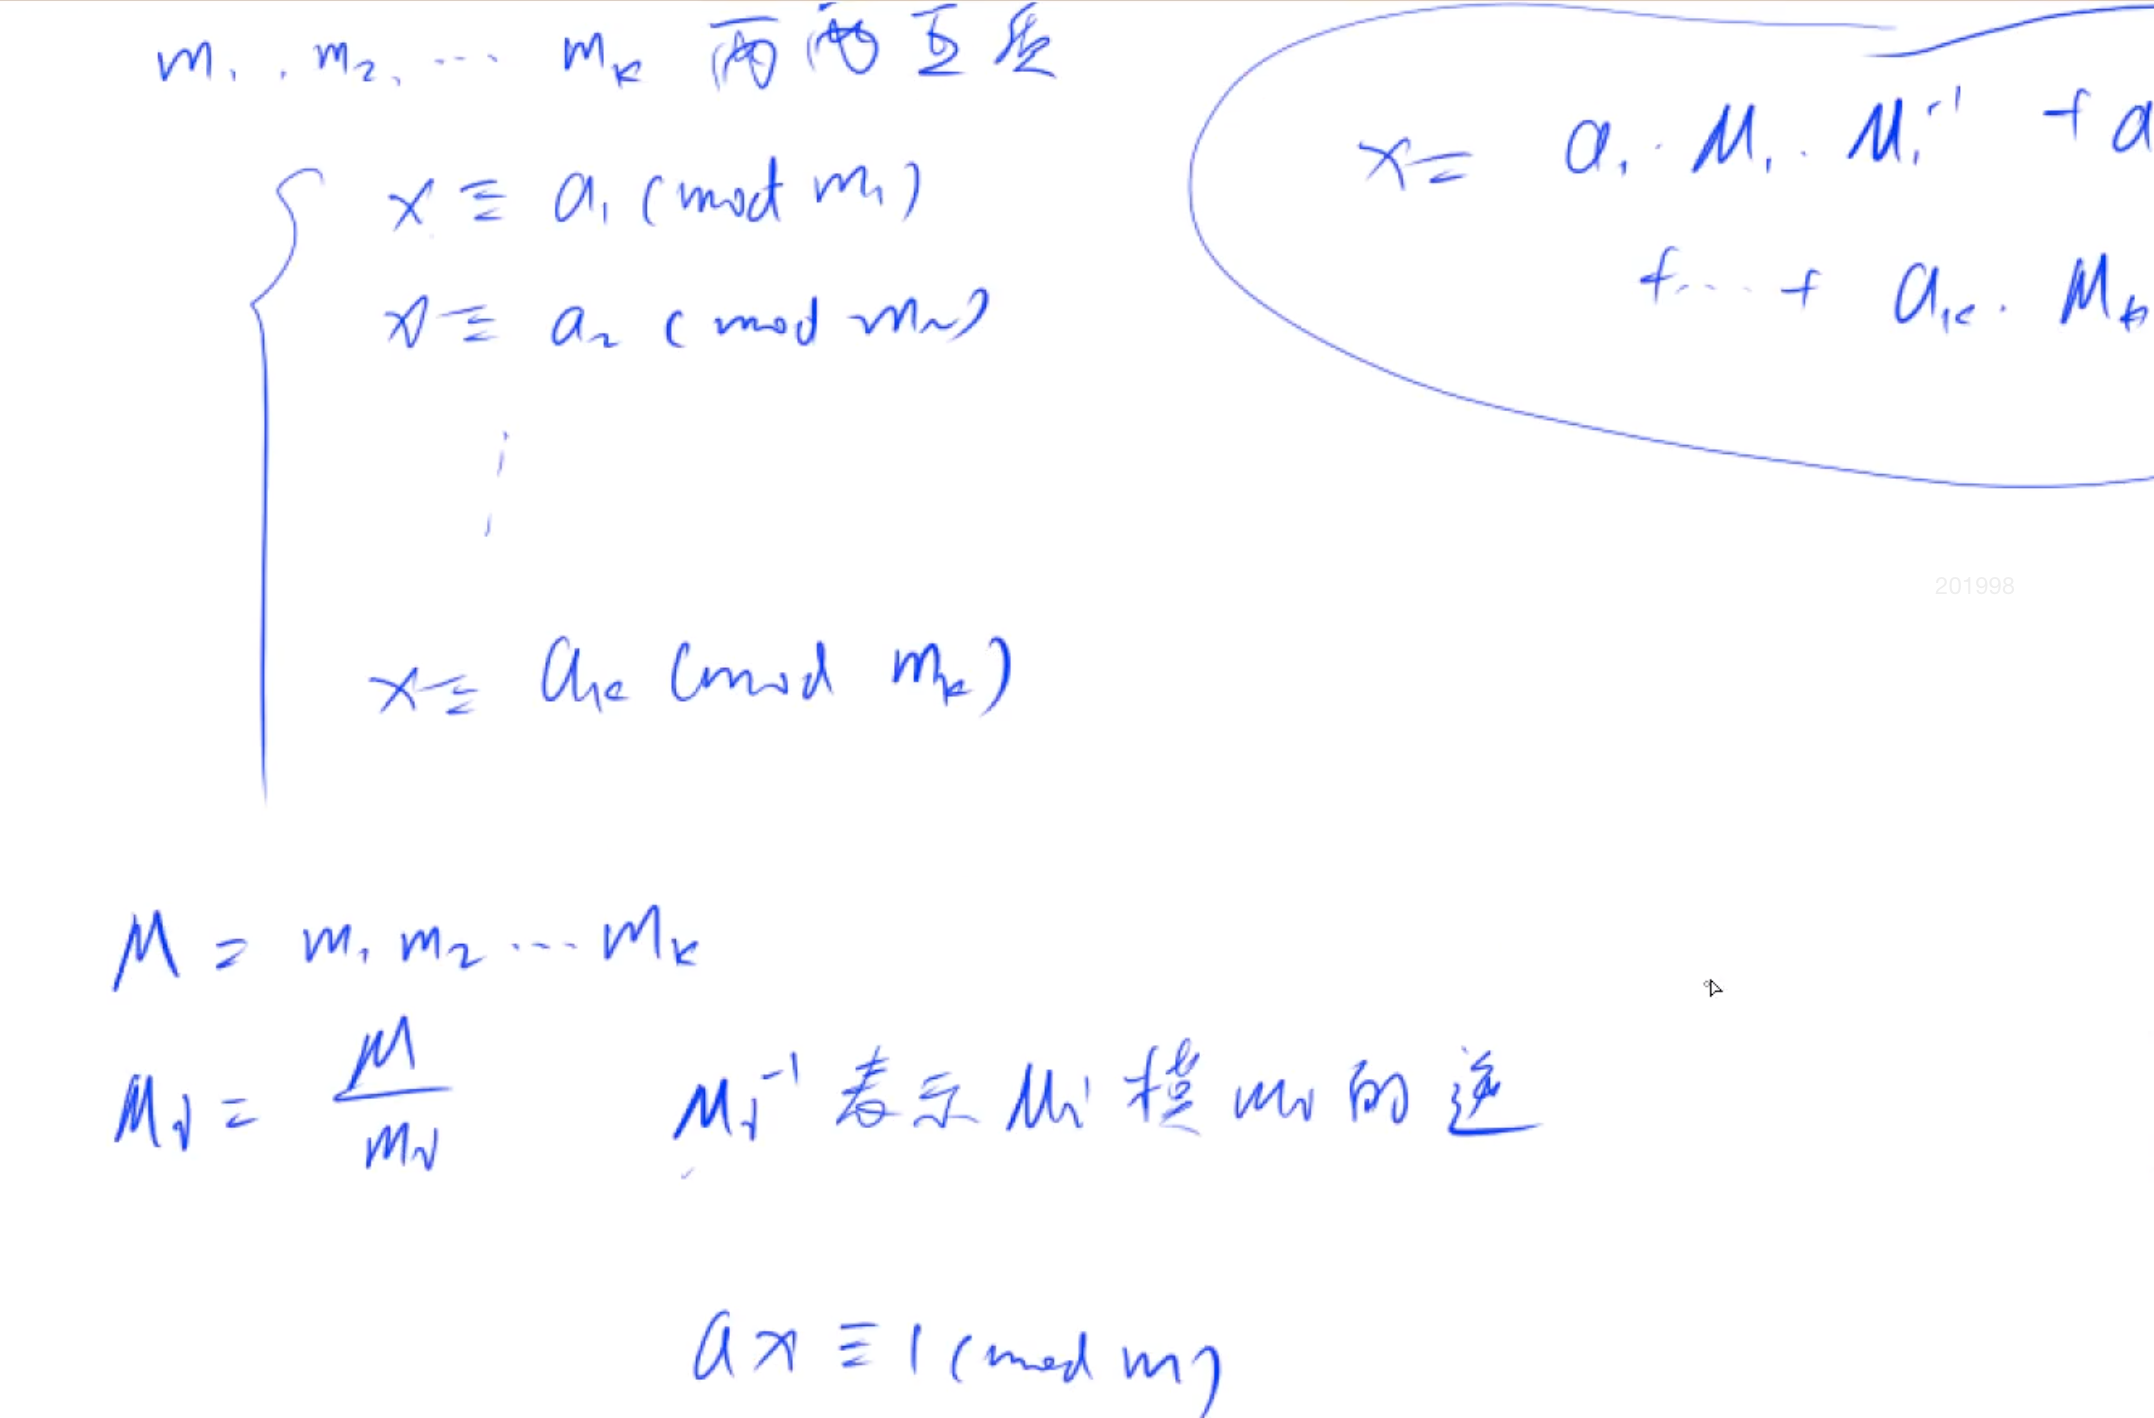 m₁, m₂, ... mₖ 两两互质
x ≡ a₁ (mod m₁)
x ≡ a₂ (mod m₂)
⋮
x ≡ aₖ (mod mₖ)
x = a₁ · M₁ · M₁⁻¹ + a
+ ... + aₖ · Mₖ
201998
M = m₁ m₂ ... mₖ
Mᵢ = M / mᵢ
Mᵢ⁻¹ 表示 Mᵢ 模 mᵢ 的逆
ax ≡ 1 (mod m)